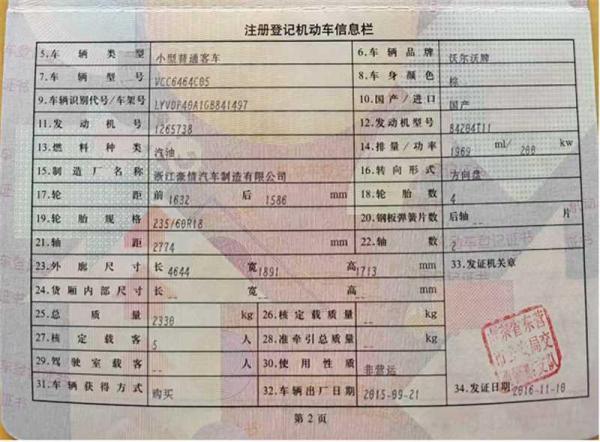 注册登记机动车信息栏
5.车辆类型 小型普通客车 6.车辆品牌 沃尔沃牌
7.车辆型号 VCC6464C05 8.车身颜色 棕
9.车辆识别代号/车架号 LYVDF40A1GB841497 10.国产/进口 国产
11.发动机号 1265738 12.发动机型号 B4204T11
13.燃料种类 汽油 14.排量/功率 1969 ml/ 200 kw
15.制造厂名称 浙江豪情汽车制造有限公司 16.转向形式 方向盘
17.轮距 前 1632 后 1586 mm 18.轮胎数 4
19.轮胎规格 235/60R18 20.钢板弹簧片数 后轴 片
21.轴距 2774 mm 22.轴数 2
23.外廓尺寸 长 4644 宽 1891 高 1713 mm 33.发证机关章
24.货厢内部尺寸 长 -- 宽 -- 高 -- mm
25.总质量 2330 kg 26.核定载质量 -- kg
27.核定载客 5 人 28.准牵引总质量 -- kg
29.驾驶室载客 -- 人 30.使用性质 非营运
31.车辆获得方式 购买 32.车辆出厂日期 2015-09-21 34.发证日期 2016-11-10
第2页